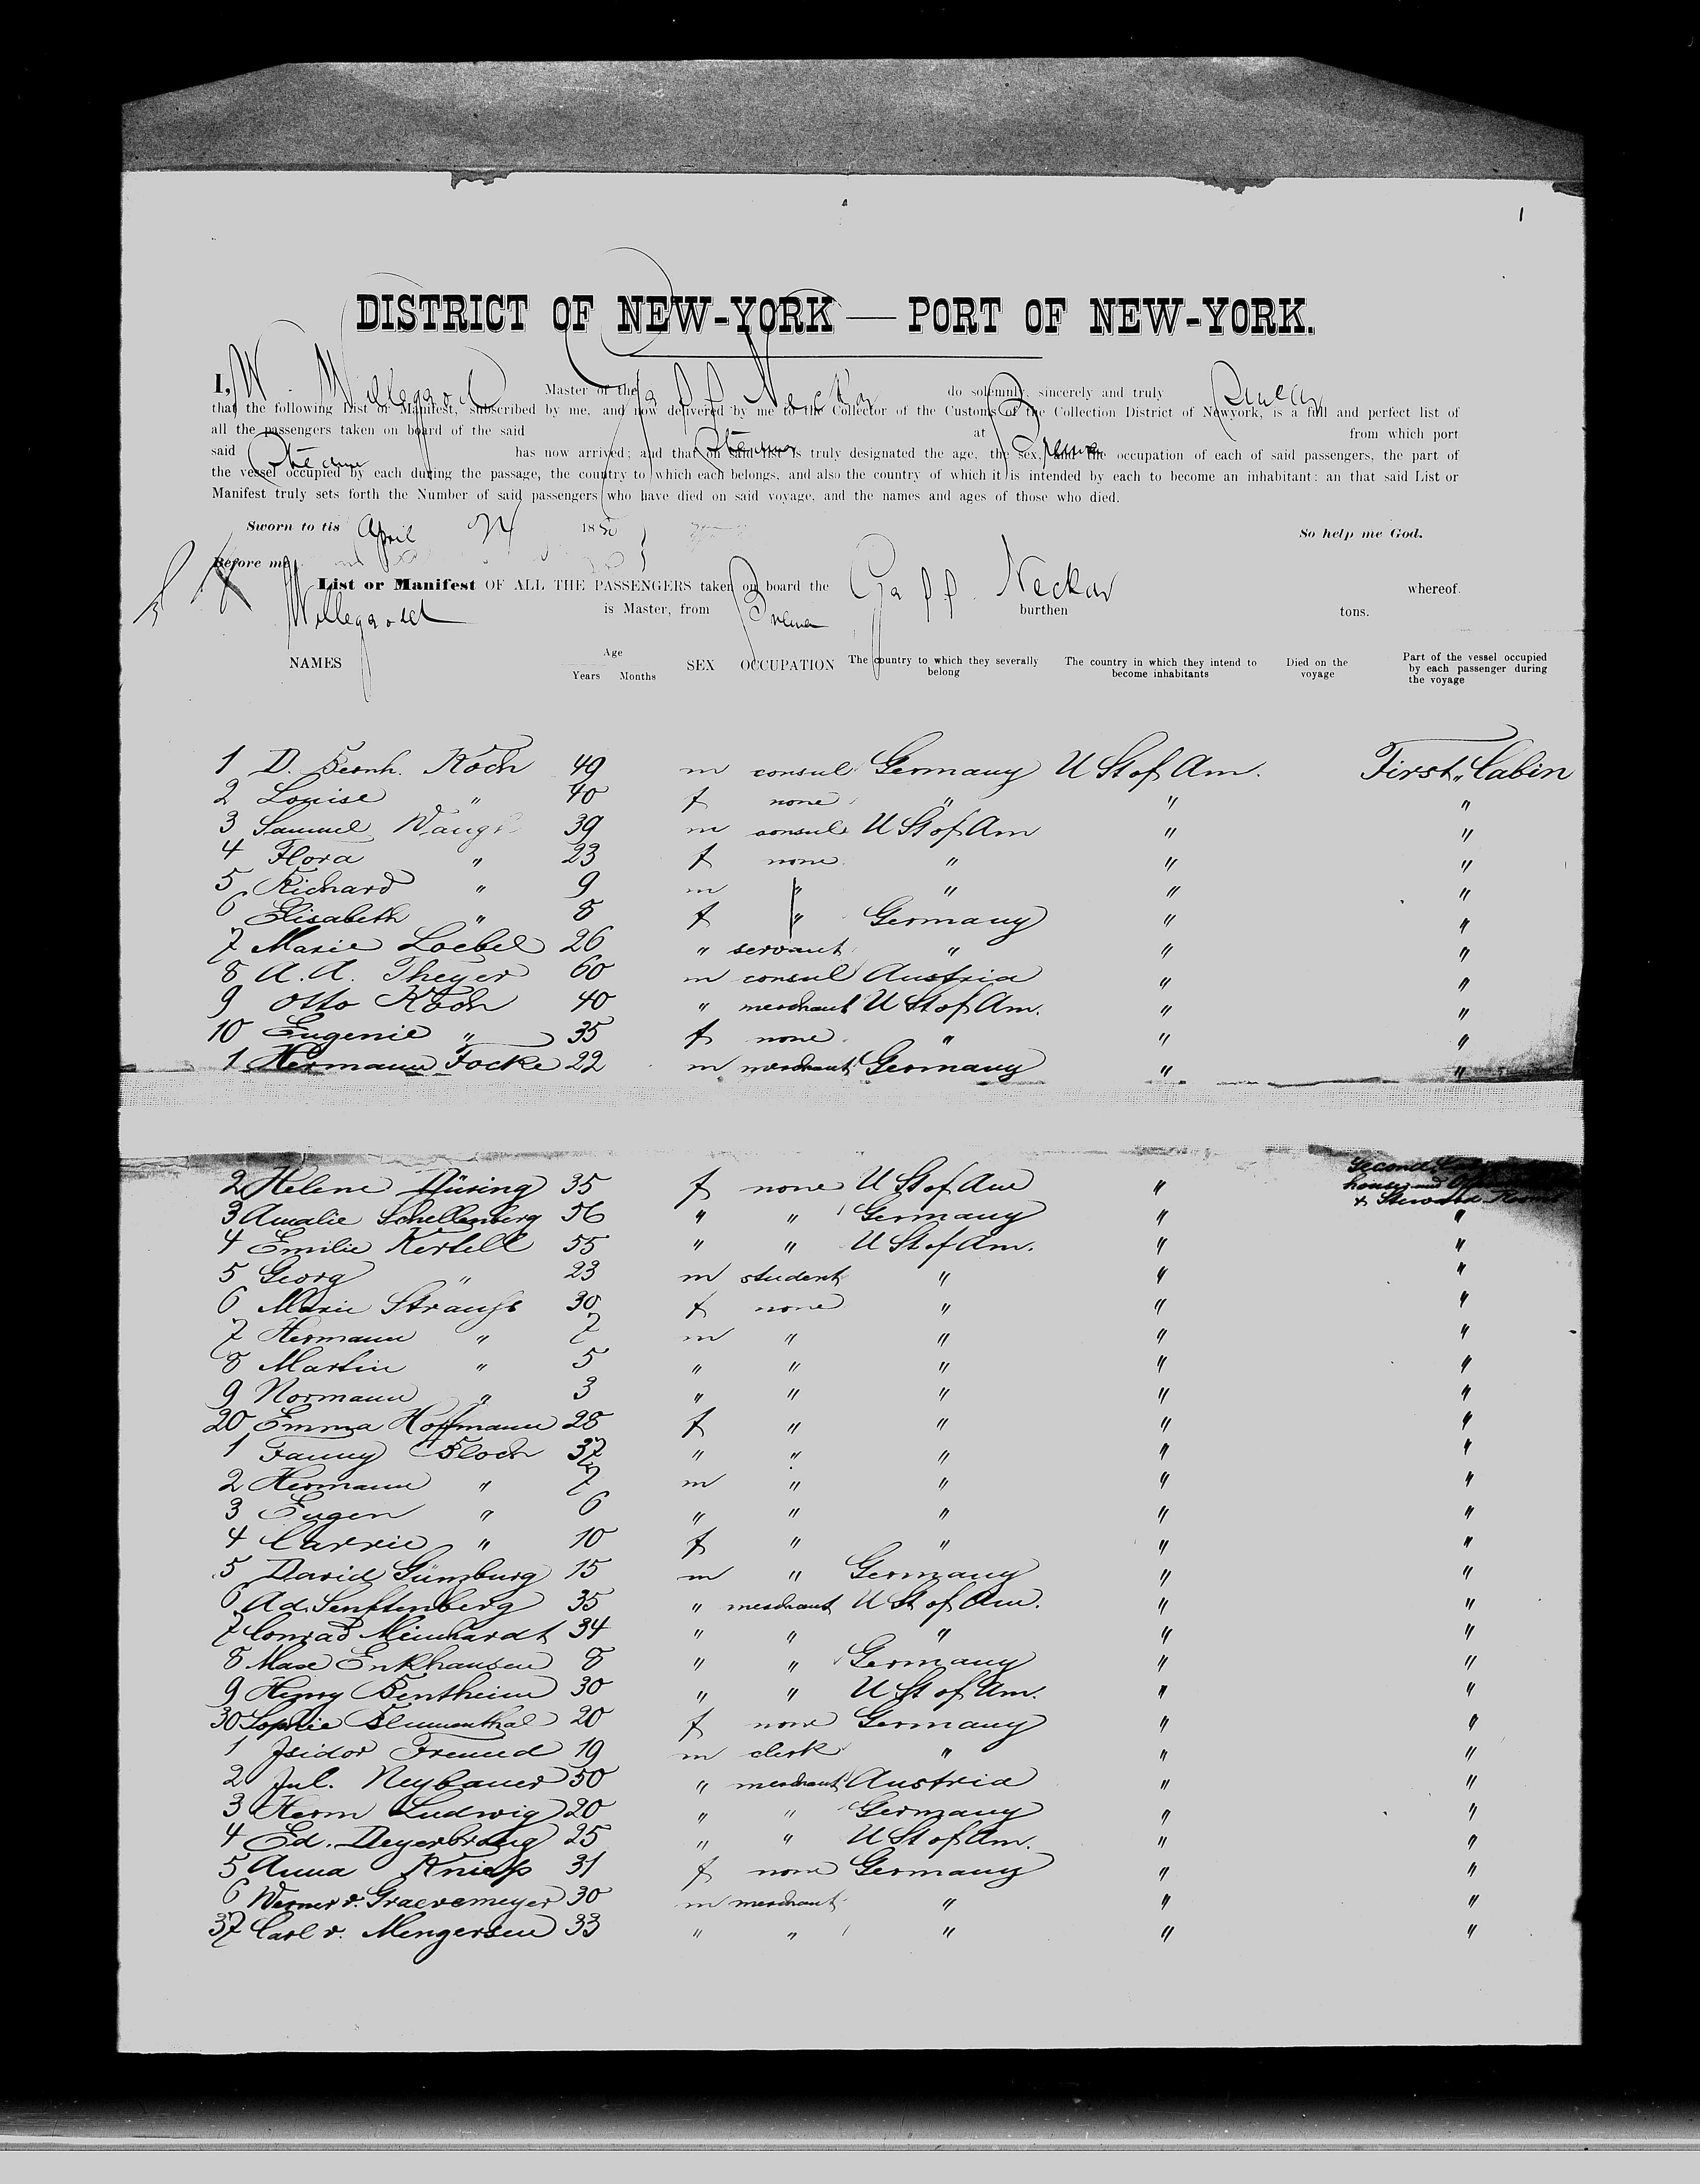 1
DISTRICT OF NEW-YORK — PORT OF NEW-YORK.
I, W. Willegaod Master of the Neckar do solemnly, sincerely and truly
that the following List or Manifest, subscribed by me, and now delivered by me to the Collector of the Customs of the Collection District of Newyork, is a full and perfect list of
all the passengers taken on board of the said at from which port
said Steamer has now arrived; and that on said list is truly designated the age, the sex, and the occupation of each of said passengers, the part of
the vessel occupied by each during the passage, the country to which each belongs, and also the country of which it is intended by each to become an inhabitant: an that said List or
Manifest truly sets forth the Number of said passengers who have died on said voyage, and the names and ages of those who died.
Sworn to tis April 24 1880 So help me God.
Before me
List or Manifest OF ALL THE PASSENGERS taken on board the Neckar whereof
Willegaod is Master, from Bremen burthen tons.
NAMES Age Years Months SEX OCCUPATION The country to which they severally belong The country in which they intend to become inhabitants Died on the voyage Part of the vessel occupied by each passenger during the voyage
1 D. Bernh. Koch 49 m consul Germany U St of Am. First Cabin
2 Louise " 40 f none " " "
3 Samuel Waugh 39 m consul U St of Am " "
4 Flora " 23 f none " " "
5 Richard " 9 m " " " "
6 Elisabeth " 8 f " Germany " "
7 Marie Loebel 26 " servant " " "
8 A. A. Theyer 60 m consul Austria " "
9 Otto Koch 40 " merchant U St of Am. " "
10 Eugenie " 35 f none " " "
1 Hermann Focke 22 m merchant Germany " "
2 Helene Düsing 35 f none U St of Am " Second house and & Steward Rooms
3 Amalie Schellenberg 56 " " Germany " "
4 Emilie Kertell 55 " " U St of Am. " "
5 Georg " 23 m student " " "
6 Marie Strauss 30 f none " " "
7 Hermann " 7 m " " " "
8 Martin " 5 " " " " "
9 Normann " 3 " " " " "
20 Emma Hoffmann 28 f " " " "
1 Fanny Bloch 37 " " " " "
2 Hermann " 7 m " " " "
3 Eugen " 6 " " " " "
4 Carrie " 10 f " " " "
5 David Günzburg 15 m " Germany " "
6 Ad. Senftenberg 35 " merchant U St of Am. " "
7 Conrad Meinhardt 34 " " " " "
8 Max Enkhausen 8 " " Germany " "
9 Henry Bentheim 30 " " U St of Am. " "
30 Sophie Blumenthal 20 f none Germany " "
1 Isidor Freund 19 m clerk " " "
2 Jul. Neybauer 50 " merchant Austria " "
3 Herm Ludwig 20 " " Germany " "
4 Ed. Deyerbraug 25 " " U St of Am. " "
5 Anna Kniep 31 f none Germany " "
6 Werner v. Graevemeyer 30 m merchant " " "
37 Carl v. Mengersen 33 " " " " "